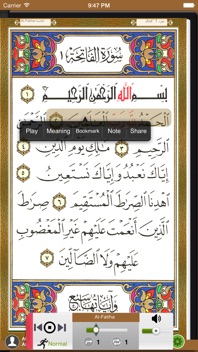 Carrier
9:47 PM
سُورَةُ الفَاتِحَةِ ١
بِسْمِ اللهِ الرَّحْمَٰنِ الرَّحِيمِ
Play Meaning Bookmark Note Share
الرَّحِيمِ ۝٣ مَٰلِكِ يَوْمِ الدِّينِ ۝٤
إِيَّاكَ نَعْبُدُ وَإِيَّاكَ نَسْتَعِينُ ۝٥
اهْدِنَا الصِّرَٰطَ الْمُسْتَقِيمَ ۝٦ صِرَٰطَ
الَّذِينَ أَنْعَمْتَ عَلَيْهِمْ غَيْرِ الْمَغْضُوبِ
عَلَيْهِمْ وَلَا الضَّالِّينَ ۝٧
Al-Fatiha
Normal
1
1